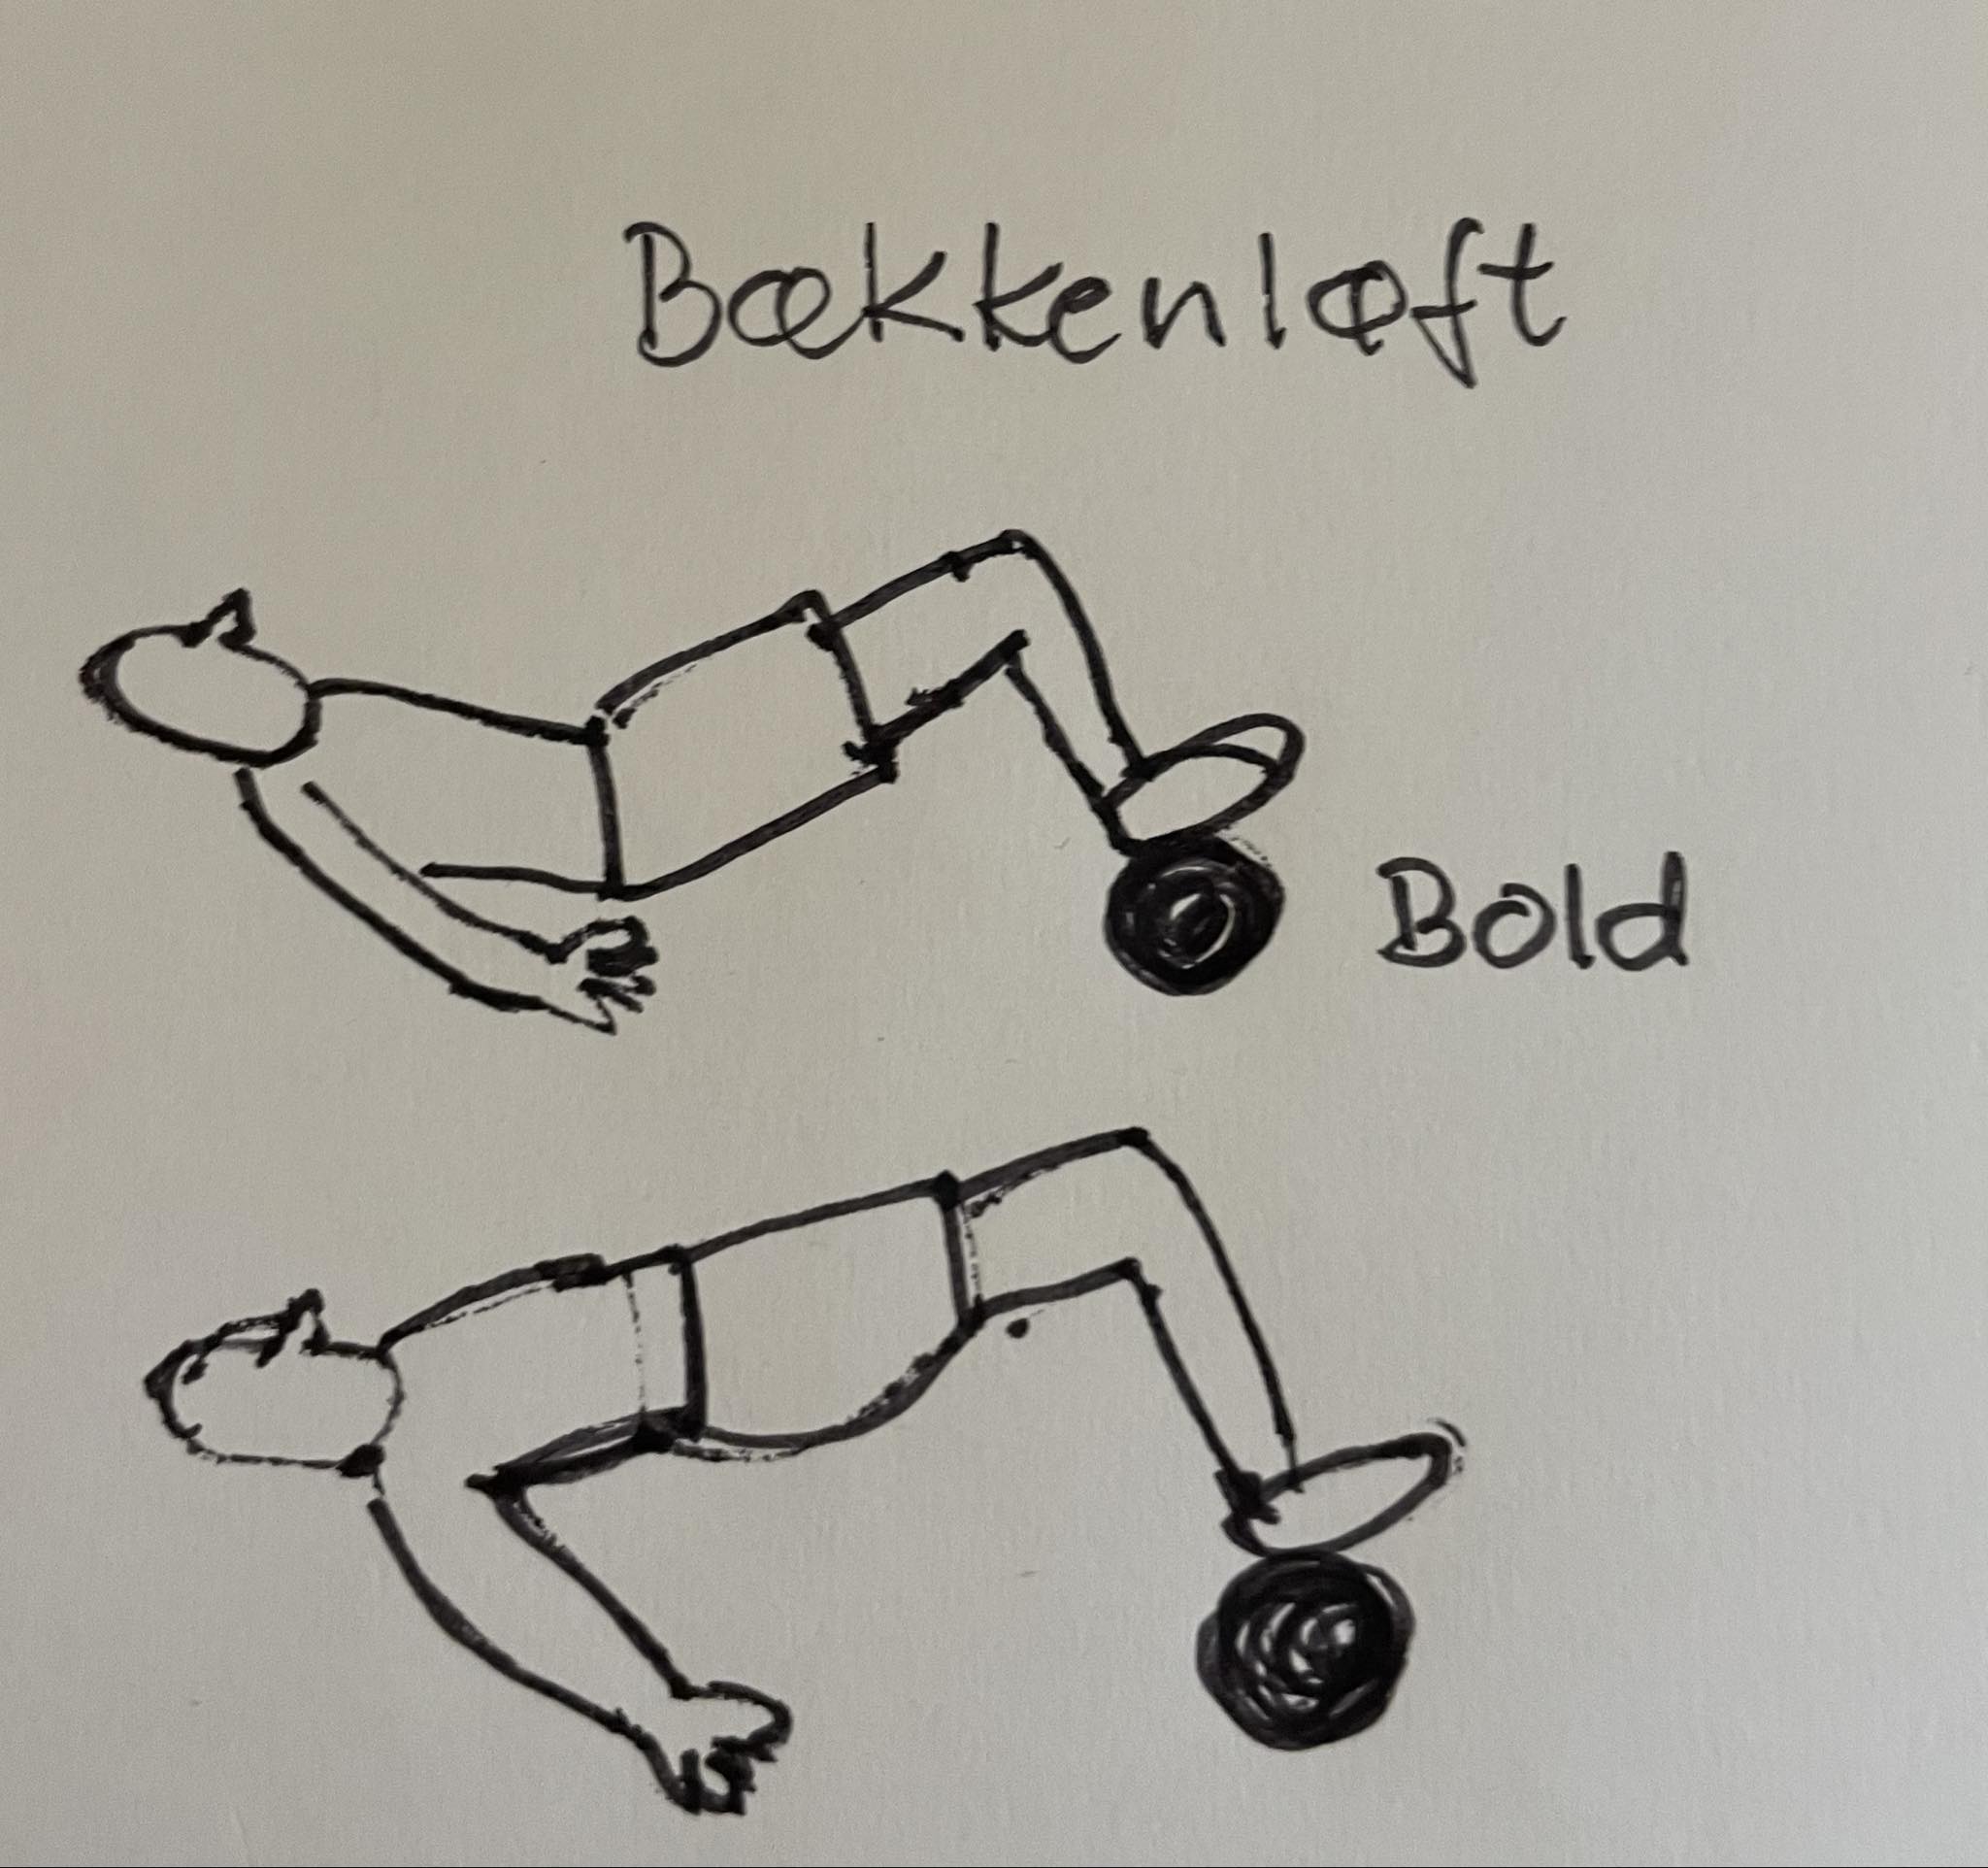 Bækkenløft
Bold